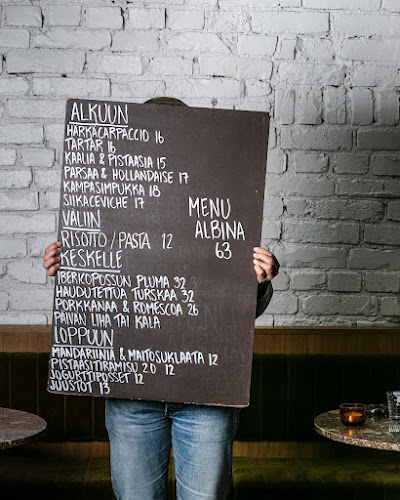 ALKUUN
HÄRKÄCARPACCIO 16
TARTAR 16
KAALIA & PISTAASIA 15
PARSAA & HOLLANDAISE 17
KAMPASIMPUKKA 18
SIIKACEVICHE 17
VÄLIIN
RISOTTO / PASTA 12
KESKELLE
IBERICOPOSSUN PLUMA 32
HAUDUTETTUA TURSKAA 32
PORKKANAA & ROMESCOA 26
PÄIVÄN LIHA TAI KALA
LOPPUUN
MANDARIINIA & MAITOSUKLAATA 12
PISTAASITIRAMISU 2.0 12
JOGURTTIPOSSET 12
JUUSTOT 13
MENU
ALBINA
63